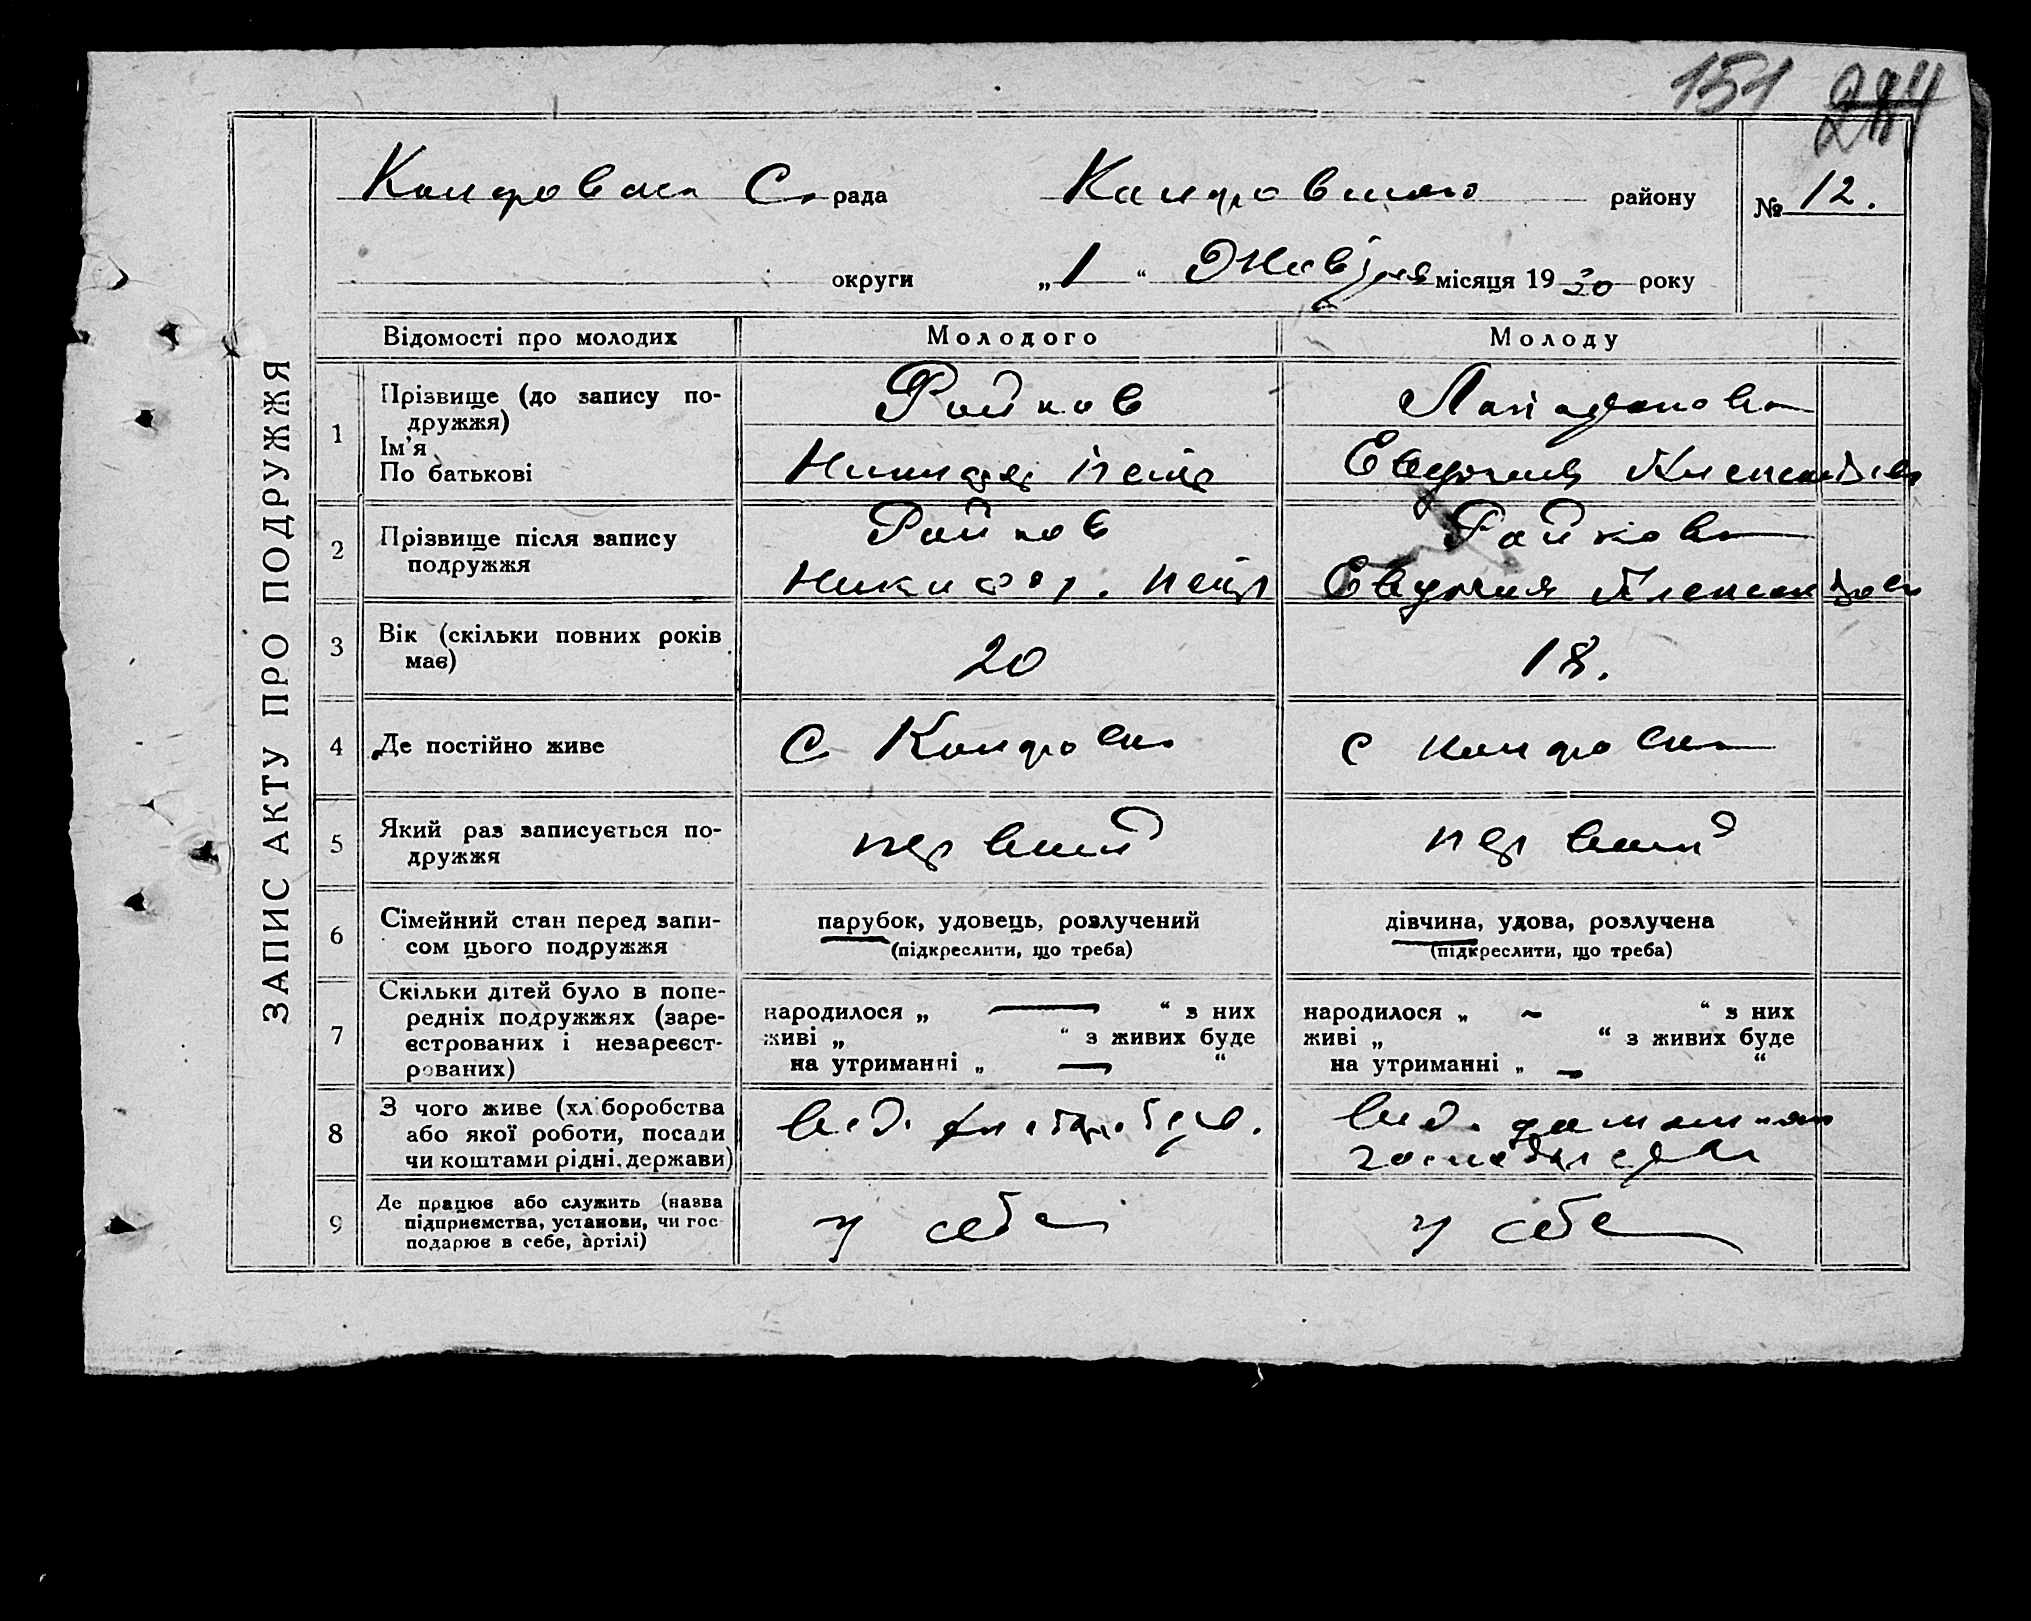 151 284
Кондровска С. рада Кондровского району № 12.
округи „ 1 “ Жовтня місяця 1920 року
ЗАПИС АКТУ ПРО ПОДРУЖЖЯ
Відомості про молодих Молодого Молоду
1 Прізвище (до запису подружжя) Райков
Ім'я
По батькові Никифор Петр Евдокия Александров
2 Прізвище після запису подружжя Райков Райкова
Никифор. Петр Евдокия Александров
3 Вік (скільки повних років має) 20 18.
4 Де постійно живе С
5 Який раз записується подружжя первый первый
6 Сімейний стан перед записом цього подружжя парубок, удовець, розлучений дівчина, удова, розлучена
(підкреслити, що треба) (підкреслити, що треба)
7 Скільки дітей було в попередніх подружжях (зареєстрованих і незареєстрованих) народилося „ — “ з них народилося „ ~ “ з них
живі „ “ з живих буде живі „ “ з живих буде
на утриманні „ — “ на утриманні „ — “
8 З чого живе (хліборобства або якої роботи, посади чи коштами рідні, держави) від. хліборобства. від. домашняго
господарства
9 Де працює або служить (назва підприємства, установи, чи господарює в себе, артілі) у себе у себе